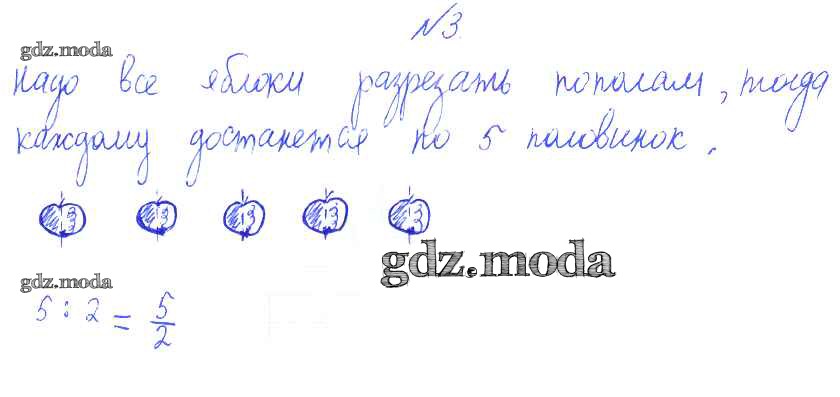 №3.
gdz.moda
Надо все яблоки разрезать пополам, тогда
каждому достанется по 5 половинок.
gdz.moda
gdz.moda
5 : 2 = 5/2